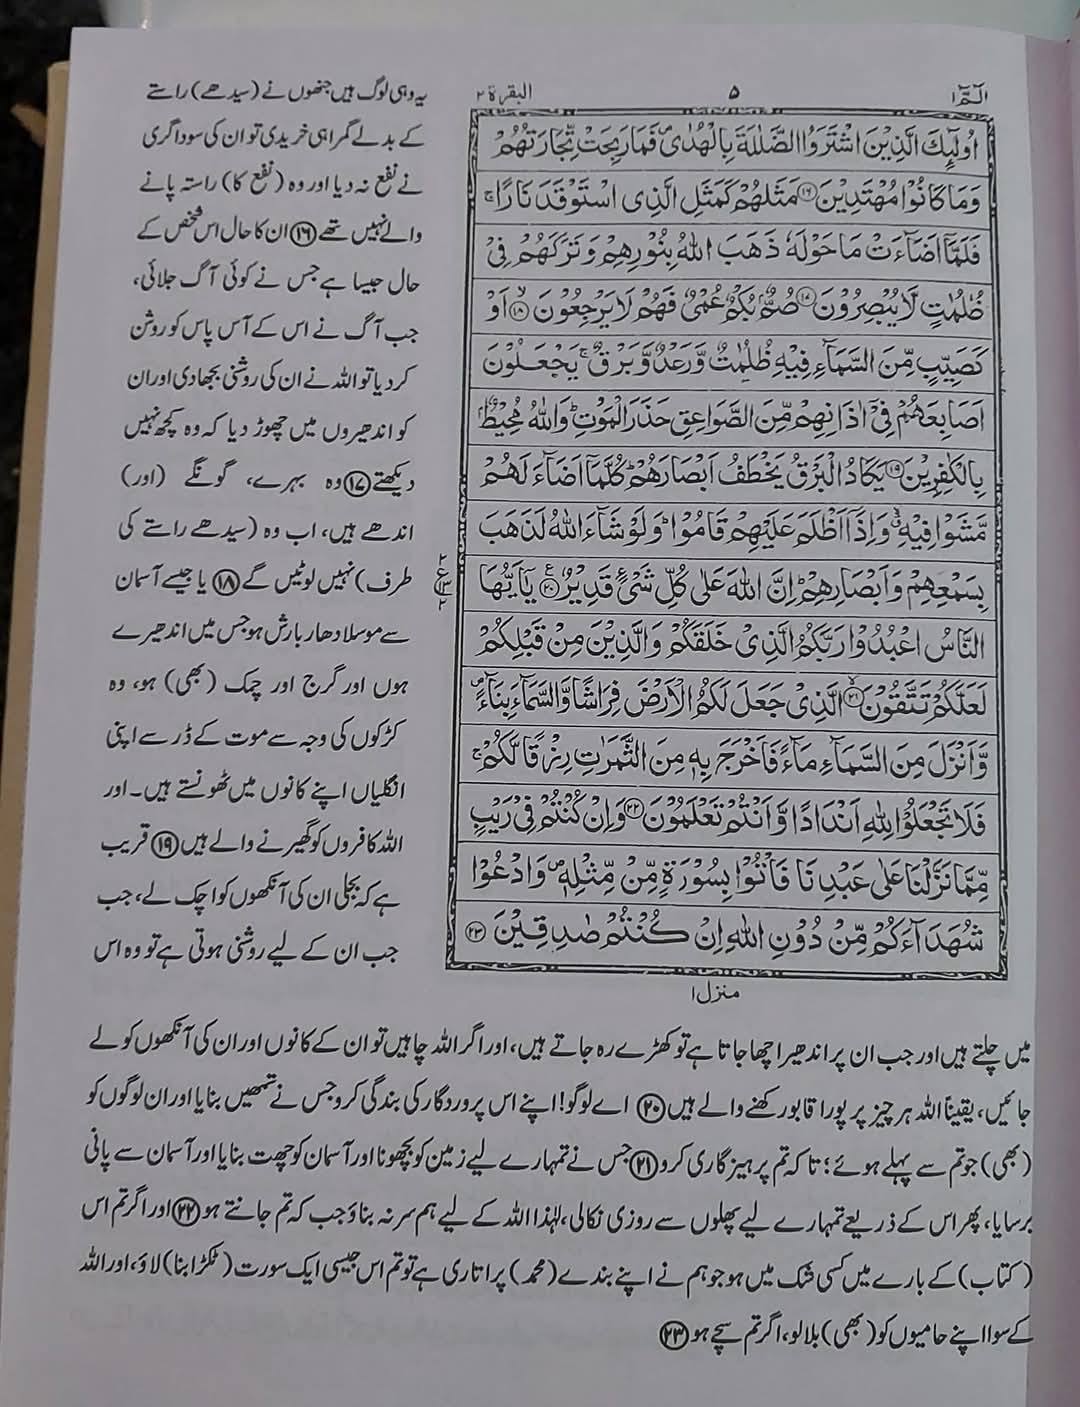 الٓمّٓ ۱
۵
البقرة ۲
اُولٰٓئِكَ الَّذِيْنَ اشْتَرَوُا الضَّلٰلَةَ بِالْهُدٰى ۪ فَمَا رَبِحَتْ تِّجَارَتُهُمْ
وَمَا كَانُوْا مُهْتَدِيْنَ ۝۱۶ مَثَلُهُمْ كَمَثَلِ الَّذِى اسْتَوْقَدَ نَارًا ۚ
فَلَمَّآ اَضَآءَتْ مَا حَوْلَهٗ ذَهَبَ اللّٰهُ بِنُوْرِهِمْ وَتَرَكَهُمْ فِىْ
ظُلُمٰتٍ لَّا يُبْصِرُوْنَ ۝۱۷ صُمٌّۢ بُكْمٌ عُمْىٌ فَهُمْ لَا يَرْجِعُوْنَ ۝۱۸ۙ اَوْ
كَصَيِّبٍ مِّنَ السَّمَآءِ فِيْهِ ظُلُمٰتٌ وَّرَعْدٌ وَّبَرْقٌ ۚ يَجْعَلُوْنَ
اَصَابِعَهُمْ فِىْٓ اٰذَانِهِمْ مِّنَ الصَّوَاعِقِ حَذَرَ الْمَوْتِ ؕ وَاللّٰهُ مُحِيْطٌۢ
بِالْكٰفِرِيْنَ ۝۱۹ يَكَادُ الْبَرْقُ يَخْطَفُ اَبْصَارَهُمْ ؕ كُلَّمَآ اَضَآءَ لَهُمْ
مَّشَوْا فِيْهِ ۙۗ وَاِذَآ اَظْلَمَ عَلَيْهِمْ قَامُوْا ؕ وَلَوْ شَآءَ اللّٰهُ لَذَهَبَ
بِسَمْعِهِمْ وَاَبْصَارِهِمْ ؕ اِنَّ اللّٰهَ عَلٰى كُلِّ شَىْءٍ قَدِيْرٌ ۝۲۰ۧ يٰٓاَيُّهَا
النَّاسُ اعْبُدُوْا رَبَّكُمُ الَّذِىْ خَلَقَكُمْ وَالَّذِيْنَ مِنْ قَبْلِكُمْ
لَعَلَّكُمْ تَتَّقُوْنَ ۝۲۱ۙ الَّذِىْ جَعَلَ لَكُمُ الْاَرْضَ فِرَاشًا وَّالسَّمَآءَ بِنَآءً ۪
وَّاَنْزَلَ مِنَ السَّمَآءِ مَآءً فَاَخْرَجَ بِهٖ مِنَ الثَّمَرٰتِ رِزْقًا لَّكُمْ ۚ
فَلَا تَجْعَلُوْا لِلّٰهِ اَنْدَادًا وَّاَنْتُمْ تَعْلَمُوْنَ ۝۲۲ وَاِنْ كُنْتُمْ فِىْ رَيْبٍ
مِّمَّا نَزَّلْنَا عَلٰى عَبْدِنَا فَاْتُوْا بِسُوْرَةٍ مِّنْ مِّثْلِهٖ ۪ وَادْعُوْا
شُهَدَآءَكُمْ مِّنْ دُوْنِ اللّٰهِ اِنْ كُنْتُمْ صٰدِقِيْنَ ۝۲۳
منزل ۱
۲
ع
۱۳
۲
یہ وہی لوگ ہیں جنھوں نے (سیدھے) راستے
کے بدلے گمراہی خریدی تو ان کی سوداگری
نے نفع نہ دیا اور وہ (نفع کا) راستہ پانے
والے نہیں تھے ⑯ ان کا حال اس شخص کے
حال جیسا ہے جس نے کوئی آگ جلائی،
جب آگ نے اس کے آس پاس کو روشن
کر دیا تو اللہ نے ان کی روشنی بجھادی اور ان
کو اندھیروں میں چھوڑ دیا کہ وہ کچھ نہیں
دیکھتے ⑰ وہ بہرے، گونگے (اور)
اندھے ہیں، اب وہ (سیدھے راستے کی
طرف) نہیں لوٹیں گے ⑱ یا جیسے آسمان
سے موسلا دھار بارش ہو جس میں اندھیرے
ہوں اور گرج اور چمک (بھی) ہو، وہ
کڑکوں کی وجہ سے موت کے ڈر سے اپنی
انگلیاں اپنے کانوں میں ٹھونستے ہیں۔ اور
اللہ کافروں کو گھیرنے والے ہیں ⑲ قریب
ہے کہ بجلی ان کی آنکھوں کو اچک لے، جب
جب ان کے لیے روشنی ہوتی ہے تو وہ اس
میں چلتے ہیں اور جب ان پر اندھیرا چھا جاتا ہے تو کھڑے رہ جاتے ہیں، اور اگر اللہ چاہیں تو ان کے کانوں اور ان کی آنکھوں کو لے
جائیں، یقیناً اللہ ہر چیز پر پورا قابو رکھنے والے ہیں ⑳ اے لوگو! اپنے اس پروردگار کی بندگی کرو جس نے تمھیں بنایا اور ان لوگوں کو
(بھی) جو تم سے پہلے ہوئے؛ تا کہ تم پرہیزگاری کرو ㉑ جس نے تمہارے لیے زمین کو بچھونا اور آسمان کو چھت بنایا اور آسمان سے پانی
برسایا، پھر اس کے ذریعے تمہارے لیے پھلوں سے روزی نکالی، لہٰذا اللہ کے لیے ہم سر نہ بناؤ جب کہ تم جانتے ہو ㉒ اور اگر تم اس
(کتاب) کے بارے میں کسی شک میں ہو جو ہم نے اپنے بندے (محمد) پر اتاری ہے تو تم اس جیسی ایک سورت (ٹکڑا بنا) لاؤ، اور اللہ
کے سوا اپنے حامیوں کو (بھی) بلالو، اگر تم سچے ہو ㉓